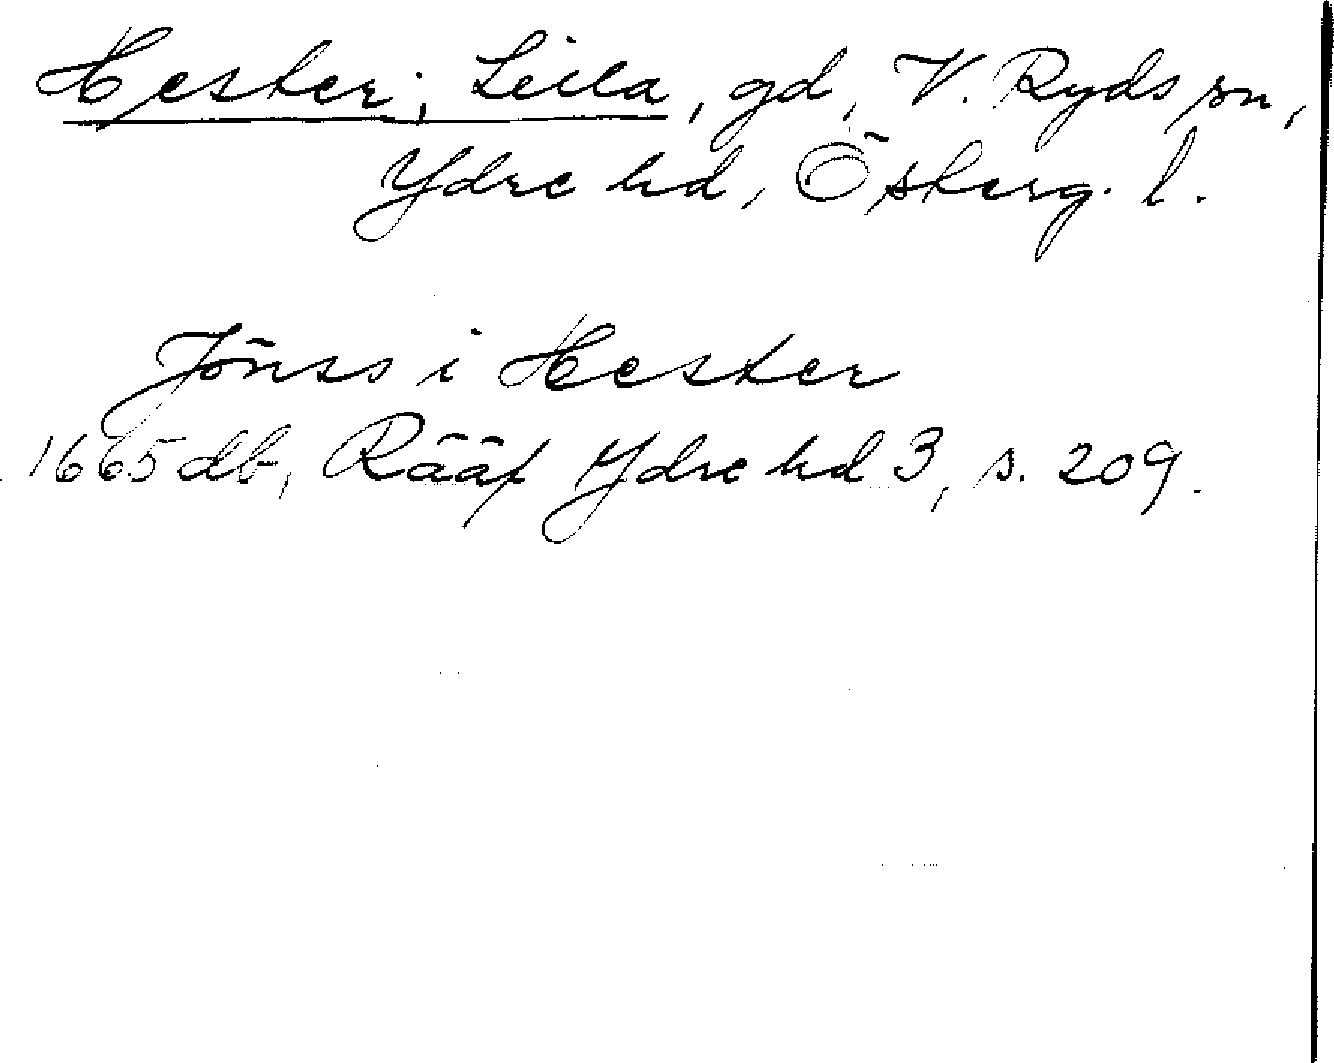 Hester, Lilla, gd, V. Ryds sn,
Ydre hd, Österg. l.
Jönss i Hester
1665 db, Rääf Ydre hd 3, s. 209.